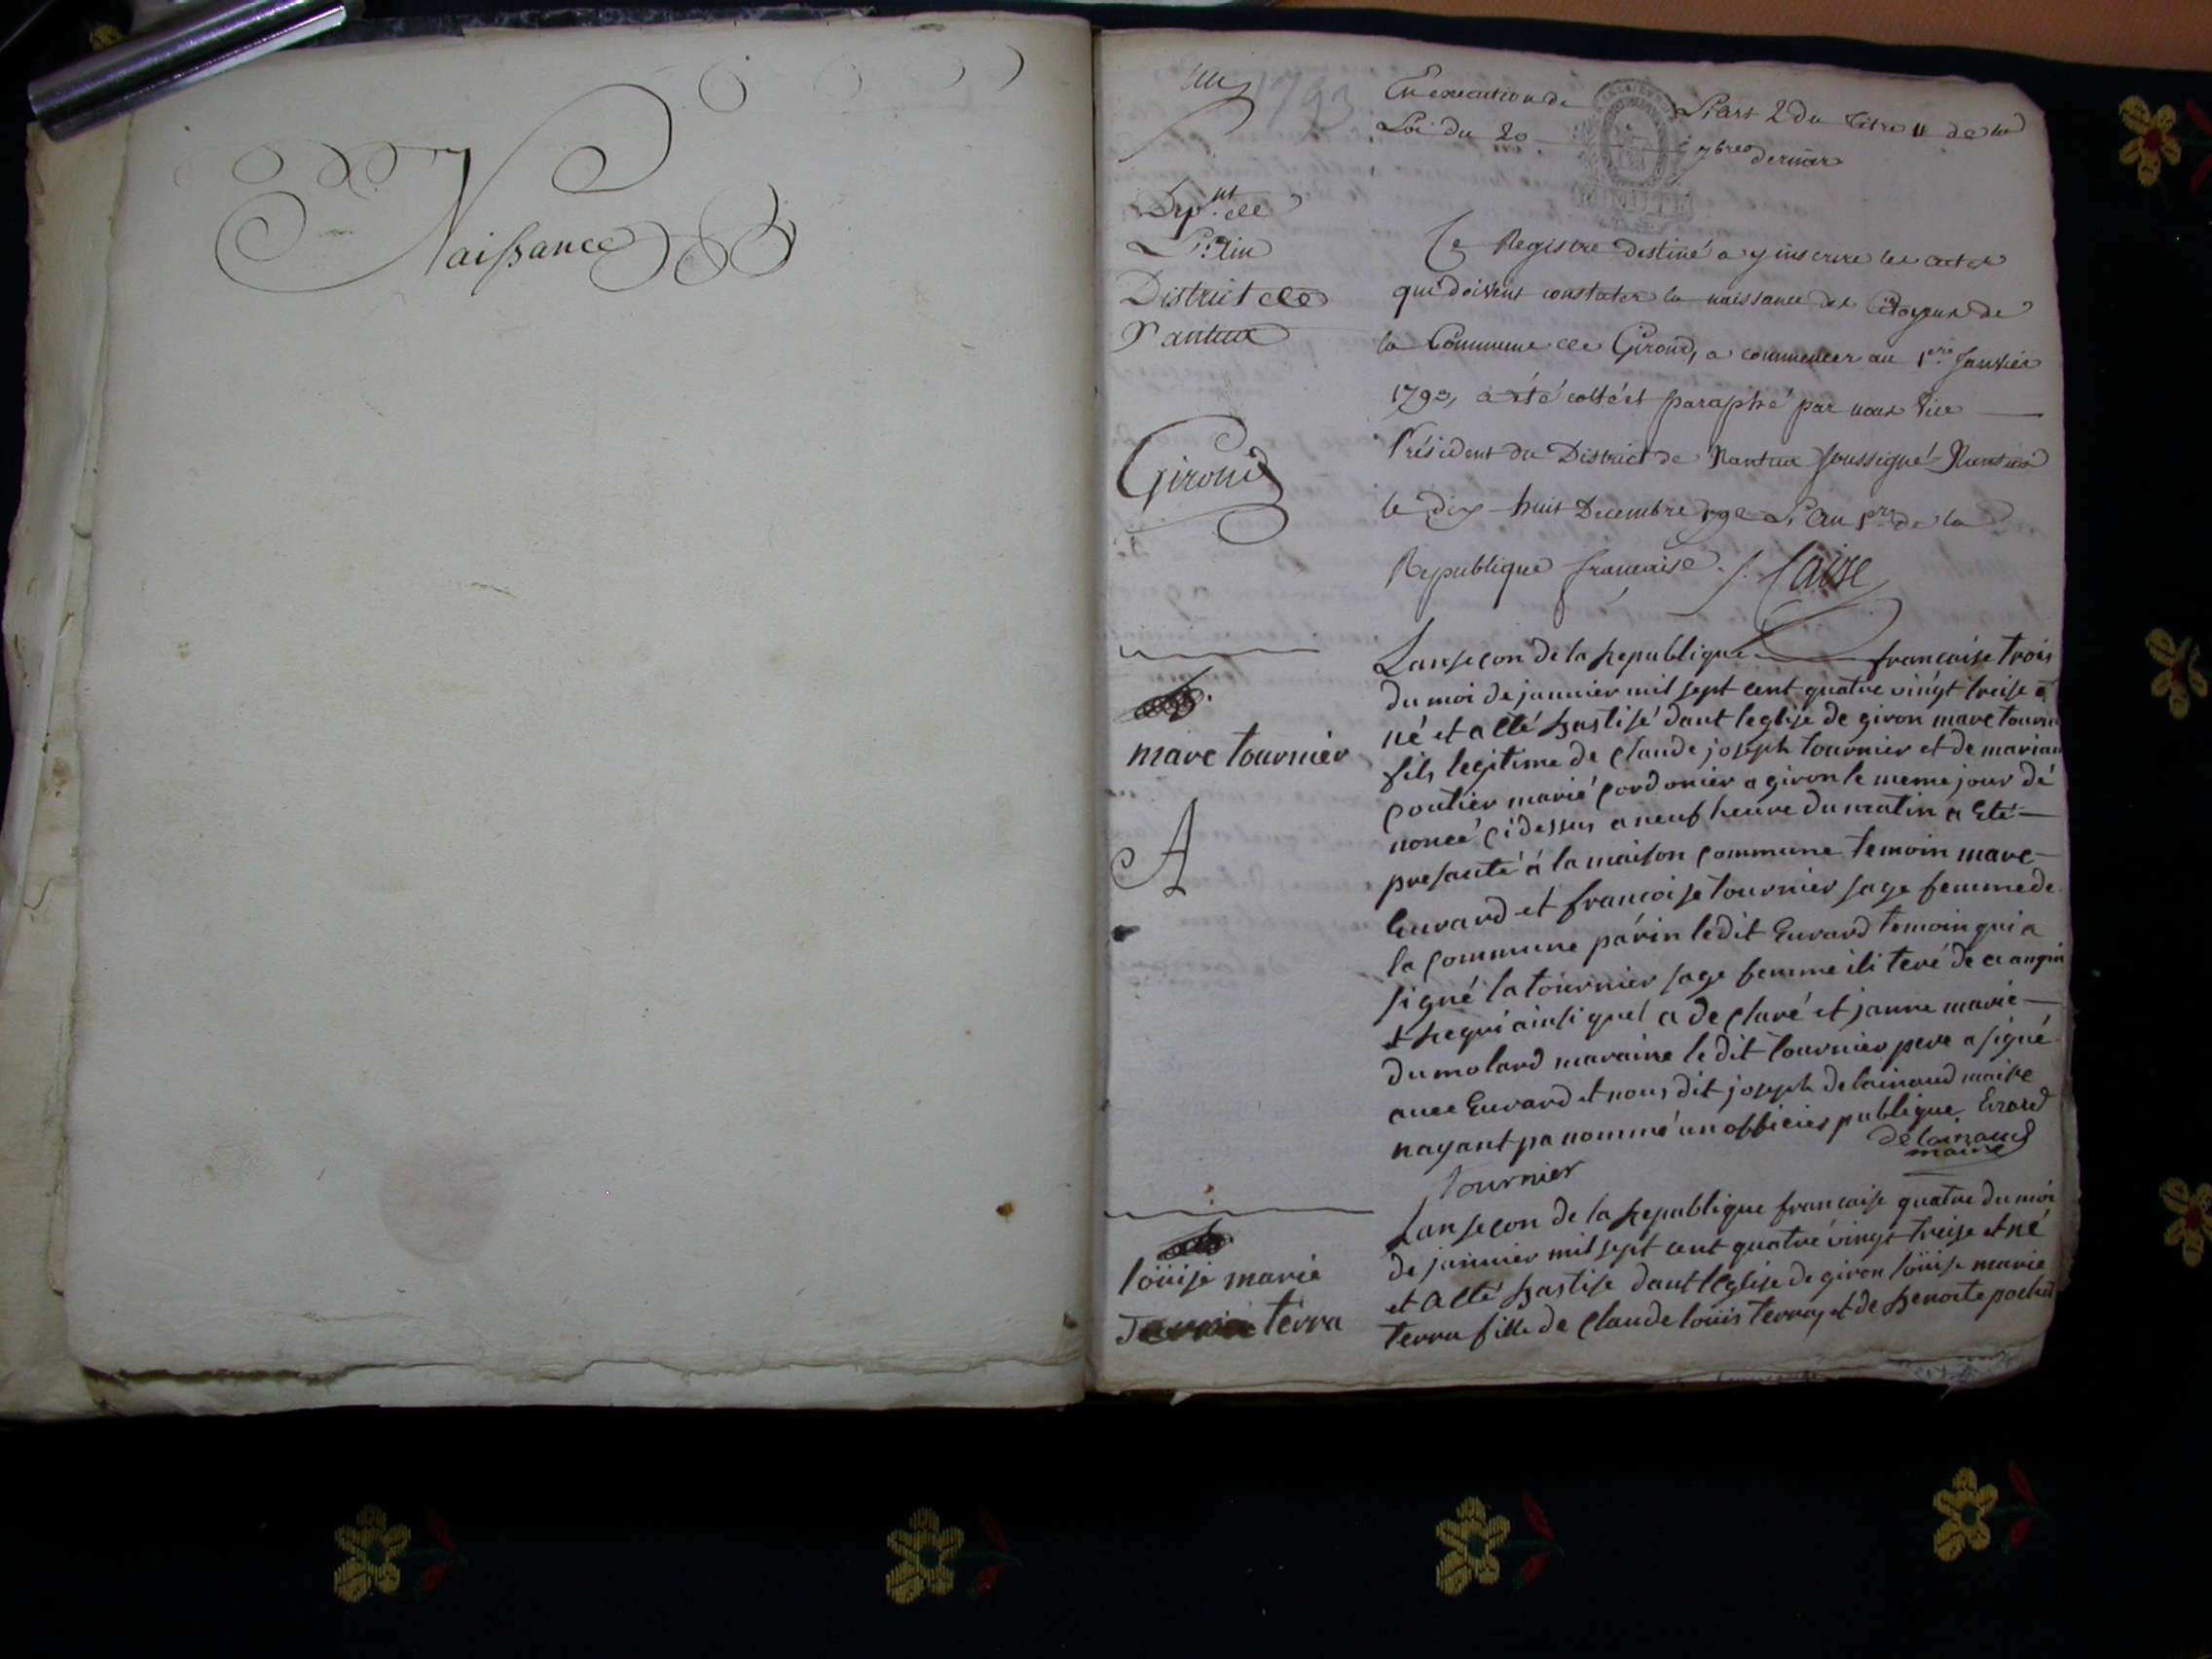 Naissance
1793
En execution de L'art 2 du titre 11 de la
Loi du 20 7bre dernier
Depnt de
L'ain
District de
Nantua
Ce Registre destiné a y inscrire les actes
qui doivent constater la naissance des Citoyens de
la Commune de Girond, a commencer au 1er Janvier
1793, a été cotté et paraphé par nous Vice
Girond
Président du District de Nantua soussigné Nantua
le dix huit Decembre 1792 L'an 1er de la
Republique francaise
Lan secon de la republique francaise trois
du moi de janvier mil sept cent quatre vingt treise
marc tournier
né et a eté bastisé dant leglise de giron marc
fils legitime de claude joseph tournier et de
marié cordonier a giron le meme jour dé
noncé ci dessus a neuf heure du matin a Eté
A
presanté á la maison commune temoin marc
Euvard et francoise tournier sage femme de
la commune parin ledit Euvard temoin qui a
signé la tournier sage femme
ainsi quel a de claré et janne marie
dumolard maraine le dit tournier pere a signé
avec Euvard et nous dit joseph delainaud maire
nayant pa nommé un officier publique Evard
delainaud
maire
tournier
Lan secon de la republique francaise quatre du moi
de janvier mil sept cent quatre vingt treise et né
loüise marie
et a eté bastise dant l'Eglise de giron loüise marie
terra
terra fille de claude loüis terray et de benoite